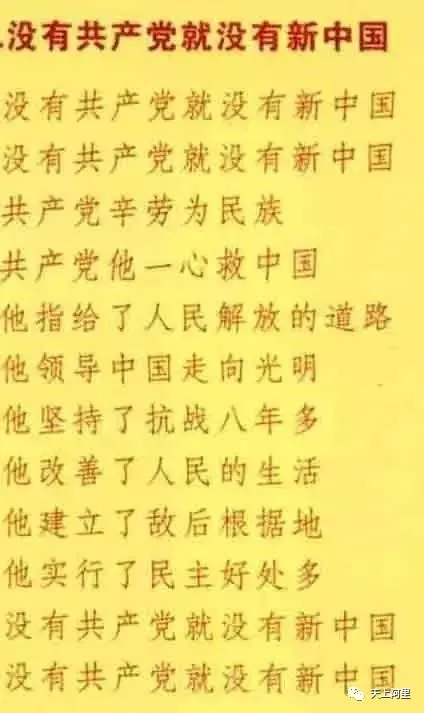 没有共产党就没有新中国
没有共产党就没有新中国
没有共产党就没有新中国
共产党辛劳为民族
共产党他一心救中国
他指给了人民解放的道路
他领导中国走向光明
他坚持了抗战八年多
他改善了人民的生活
他建立了敌后根据地
他实行了民主好处多
没有共产党就没有新中国
没有共产党就没有新中国
天上阿里